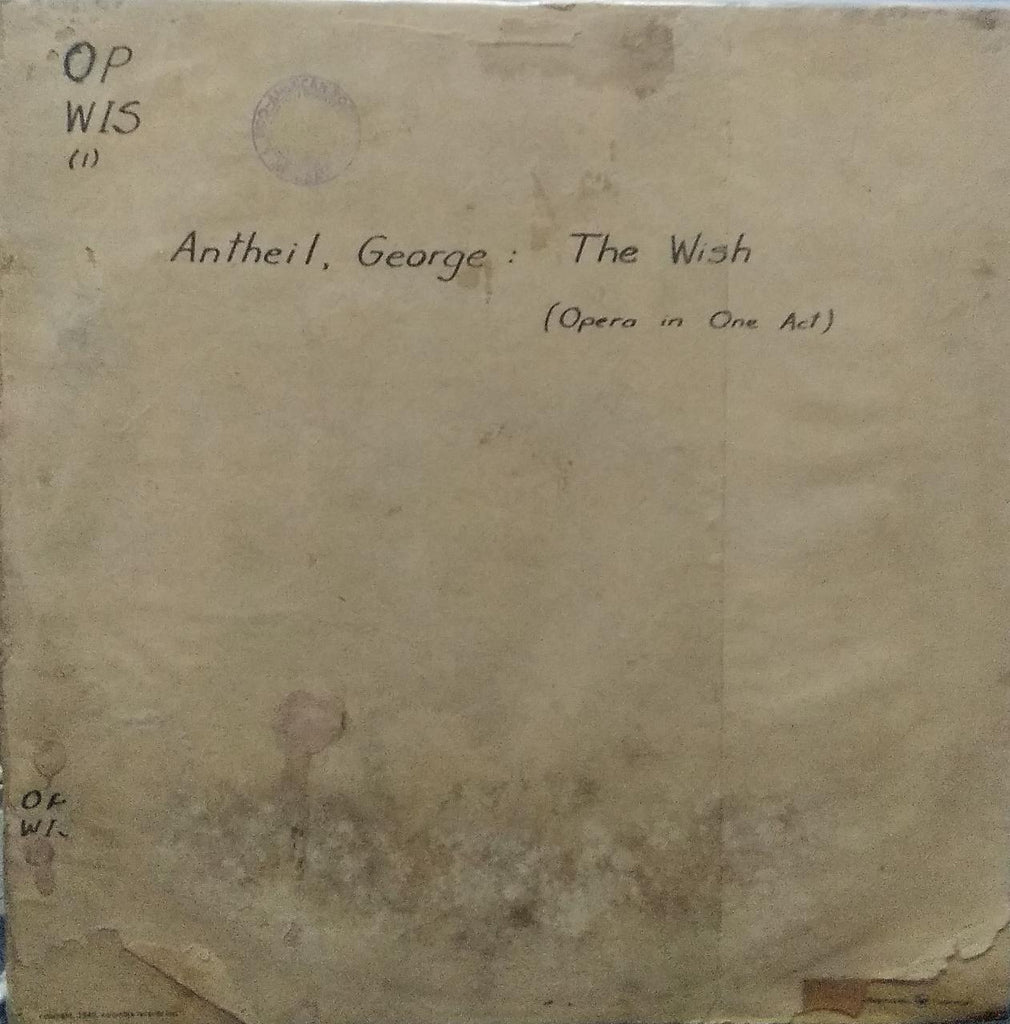 OP
WIS
(1)
Antheil, George : The Wish
(Opera in One Act)
OP
WI